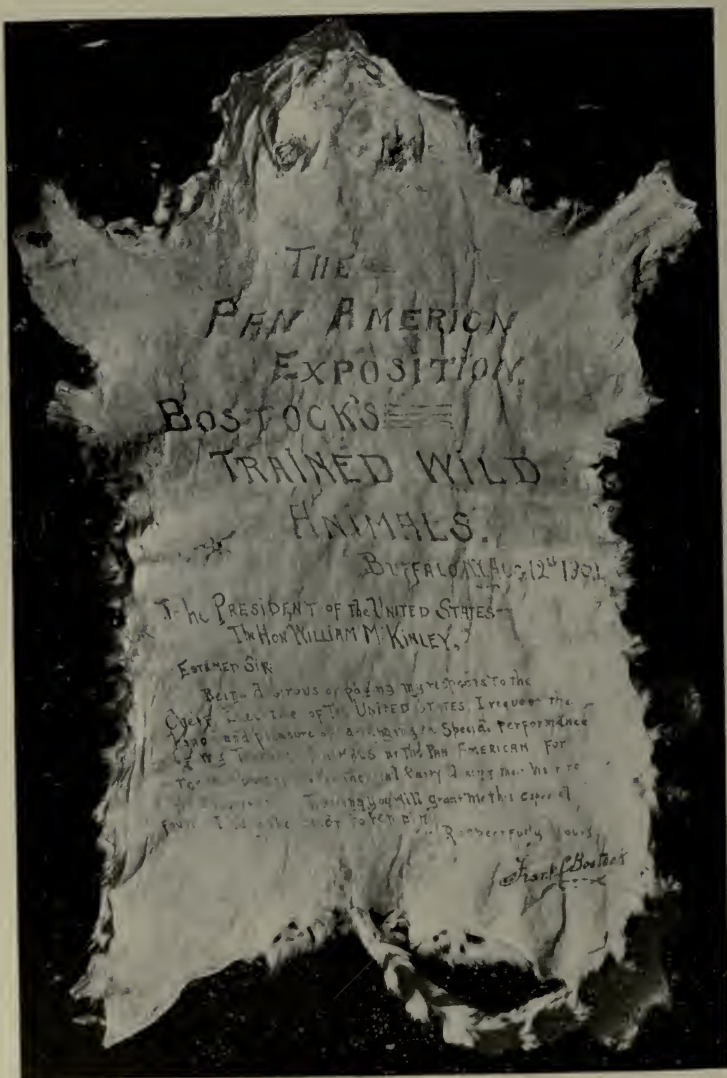 THE
PAN AMERICAN
EXPOSITION.
BOSTOCK'S
TRAINED WILD
ANIMALS.
BUFFALO N.Y. AUG. 12th 1901
The PRESIDENT OF The UNITED STATES
The HON WILLIAM McKINLEY,
ESTEEMED SIR:
Being desirous of paying my respects to the
Chief Executive of The UNITED STATES, I request the
honor and pleasure of arranging a Special Performance
ANIMALS at The PAN AMERICAN For
Party during their
Trusting you will grant me this especial
favor I
Respectfully Yours,
Frank C Bostock